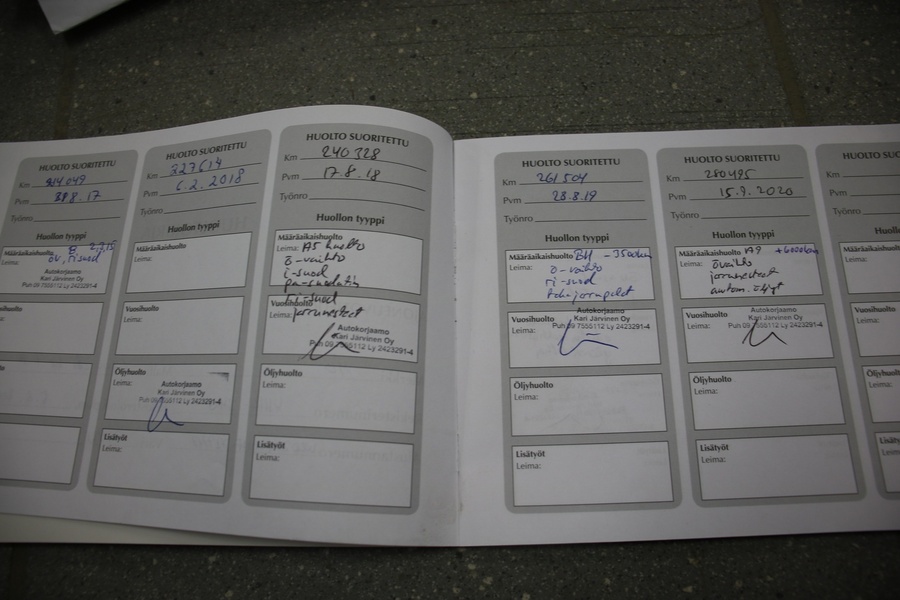 HUOLTO SUORITETTU
Km 214 049
Pvm 8.17
Työnro
Huollon tyyppi
Määräaikaishuolto B
Leima: öv, ri suod
Autokorjaamo
Kari Järvinen Oy
Puh 09 7555112 Ly 2423291-4
HUOLTO SUORITETTU
Km 227614
Pvm 6.2.2018
Työnro
Huollon tyyppi
Määräaikaishuolto
Leima:
Vuosihuolto
Leima:
Öljyhuolto
Leima:
Autokorjaamo
Kari Järvinen Oy
Puh 09 7555112 Ly 2423291-4
Lisätyöt
Leima:
HUOLTO SUORITETTU
Km 240 328
Pvm 17.8.18
Työnro
Huollon tyyppi
Määräaikaishuolto
Leima: A5 huolto
ö-vaihto
i-suod
pa-suodatin
ri-suod
Vuosihuolto
Leima: jarrunesteet
Autokorjaamo
Kari Järvinen Oy
Puh 09 7555112 Ly 2423291-4
Öljyhuolto
Leima:
Lisätyöt
Leima:
HUOLTO SUORITETTU
Km 261 504
Pvm 28.8.19
Työnro
Huollon tyyppi
Määräaikaishuolto
Leima:
ö-vaihto
ri-suod
Vuosihuolto
Leima:
Autokorjaamo
Kari Järvinen Oy
Puh 09 7555112 Ly 2423291-4
Öljyhuolto
Leima:
Lisätyöt
Leima:
HUOLTO SUORITETTU
Km 280495
Pvm 15.9.2020
Työnro
Huollon tyyppi
Määräaikaishuolto A9
Leima: övaihto
jarrunesteet
autom. öljyt
Vuosihuolto
Leima:
Autokorjaamo
Kari Järvinen Oy
Puh 09 7555112 Ly 2423291-4
Öljyhuolto
Leima:
Lisätyöt
Leima:
HUOLTO
Km
Pvm
Työnro
Määräaikaishuolto
Leima:
Leima:
Leima:
Lisätyöt
Leima: